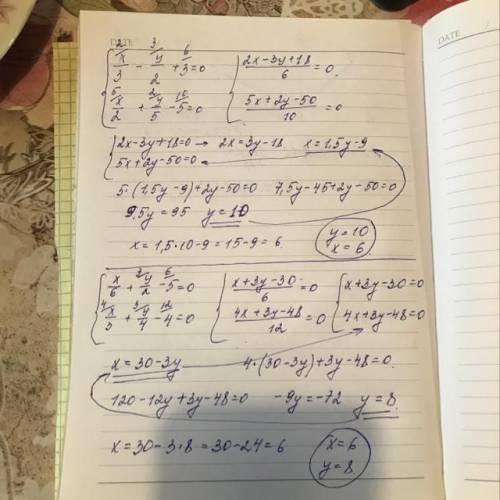 DATE
DATE
{ x/3 - y/2 + 3 = 0
x/2 + y/5 - 5 = 0
{ (2x-3y+18)/6 = 0
(5x+2y-50)/10 = 0
{ 2x-3y+18=0 → 2x=3y-18 x=1,5y-9
5x+2y-50=0
5·(1,5y-9)+2y-50=0 7,5y-45+2y-50=0
9,5y=95 y=10
x=1,5·10-9=15-9=6
y=10
x=6
{ x/6 + y/2 - 5 = 0
x/3 + y/4 - 4 = 0
{ (x+3y-30)/6 = 0
(4x+3y-48)/12 = 0
{ x+3y-30=0
4x+3y-48=0
x=30-3y 4·(30-3y)+3y-48=0
120-12y+3y-48=0 -9y=-72 y=8
x=30-3·8=30-24=6
x=6
y=8